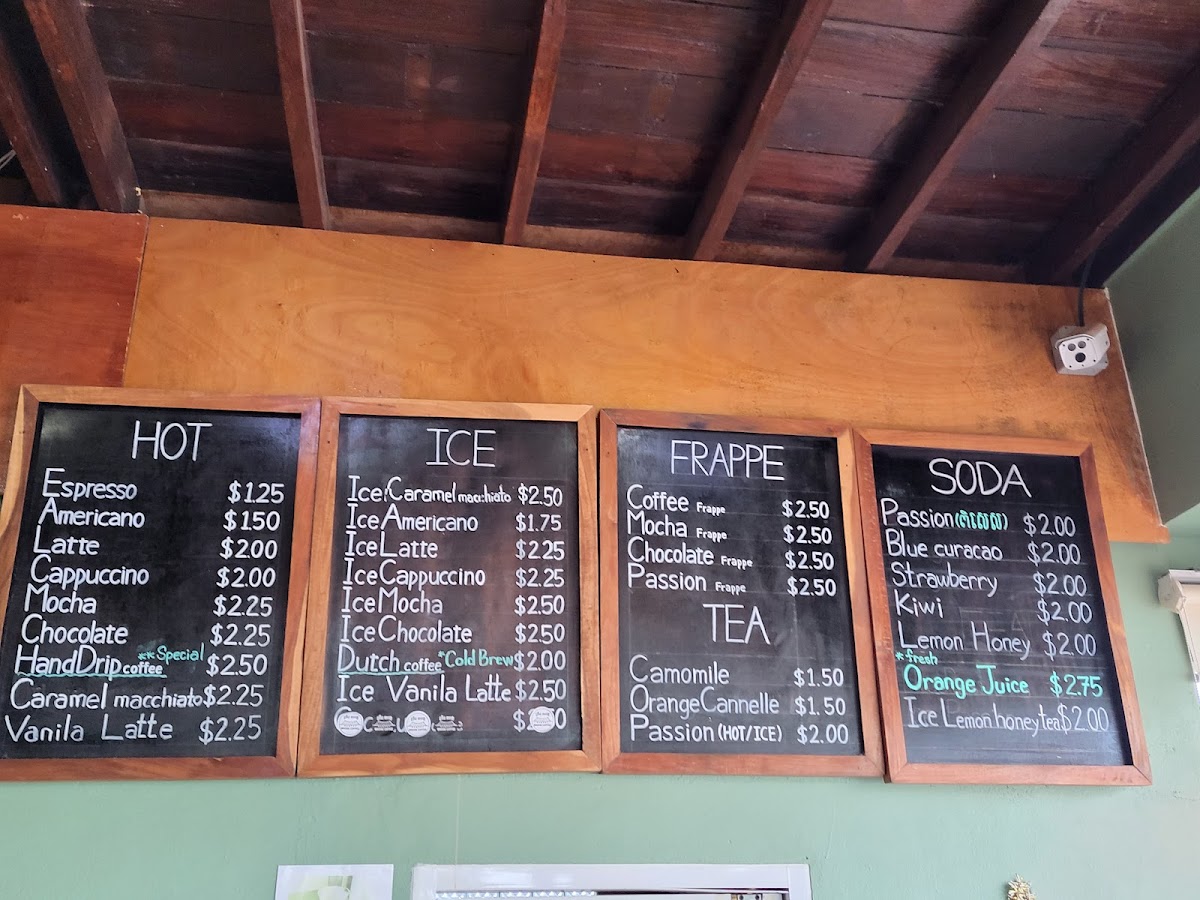 HOT
Espresso $1.25
Americano $1.50
Latte $2.00
Cappuccino $2.00
Mocha $2.25
Chocolate $2.25
HandDrip coffee **Special $2.50
Caramel macchiato $2.25
Vanila Latte $2.25
ICE
Ice Caramel macchiato $2.50
Ice Americano $1.75
Ice Latte $2.25
Ice Cappuccino $2.25
Ice Mocha $2.50
Ice Chocolate $2.50
Dutch coffee *Cold Brew $2.00
Ice Vanila Latte $2.50
FRAPPE
Coffee Frappe $2.50
Mocha Frappe $2.50
Chocolate Frappe $2.50
Passion Frappe $2.50
TEA
Camomile $1.50
Orange Cannelle $1.50
Passion (HOT/ICE) $2.00
SODA
Passion $2.00
Blue curacao $2.00
Strawberry $2.00
Kiwi $2.00
Lemon Honey $2.00
*fresh
Orange Juice $2.75
Ice Lemon honey tea $2.00